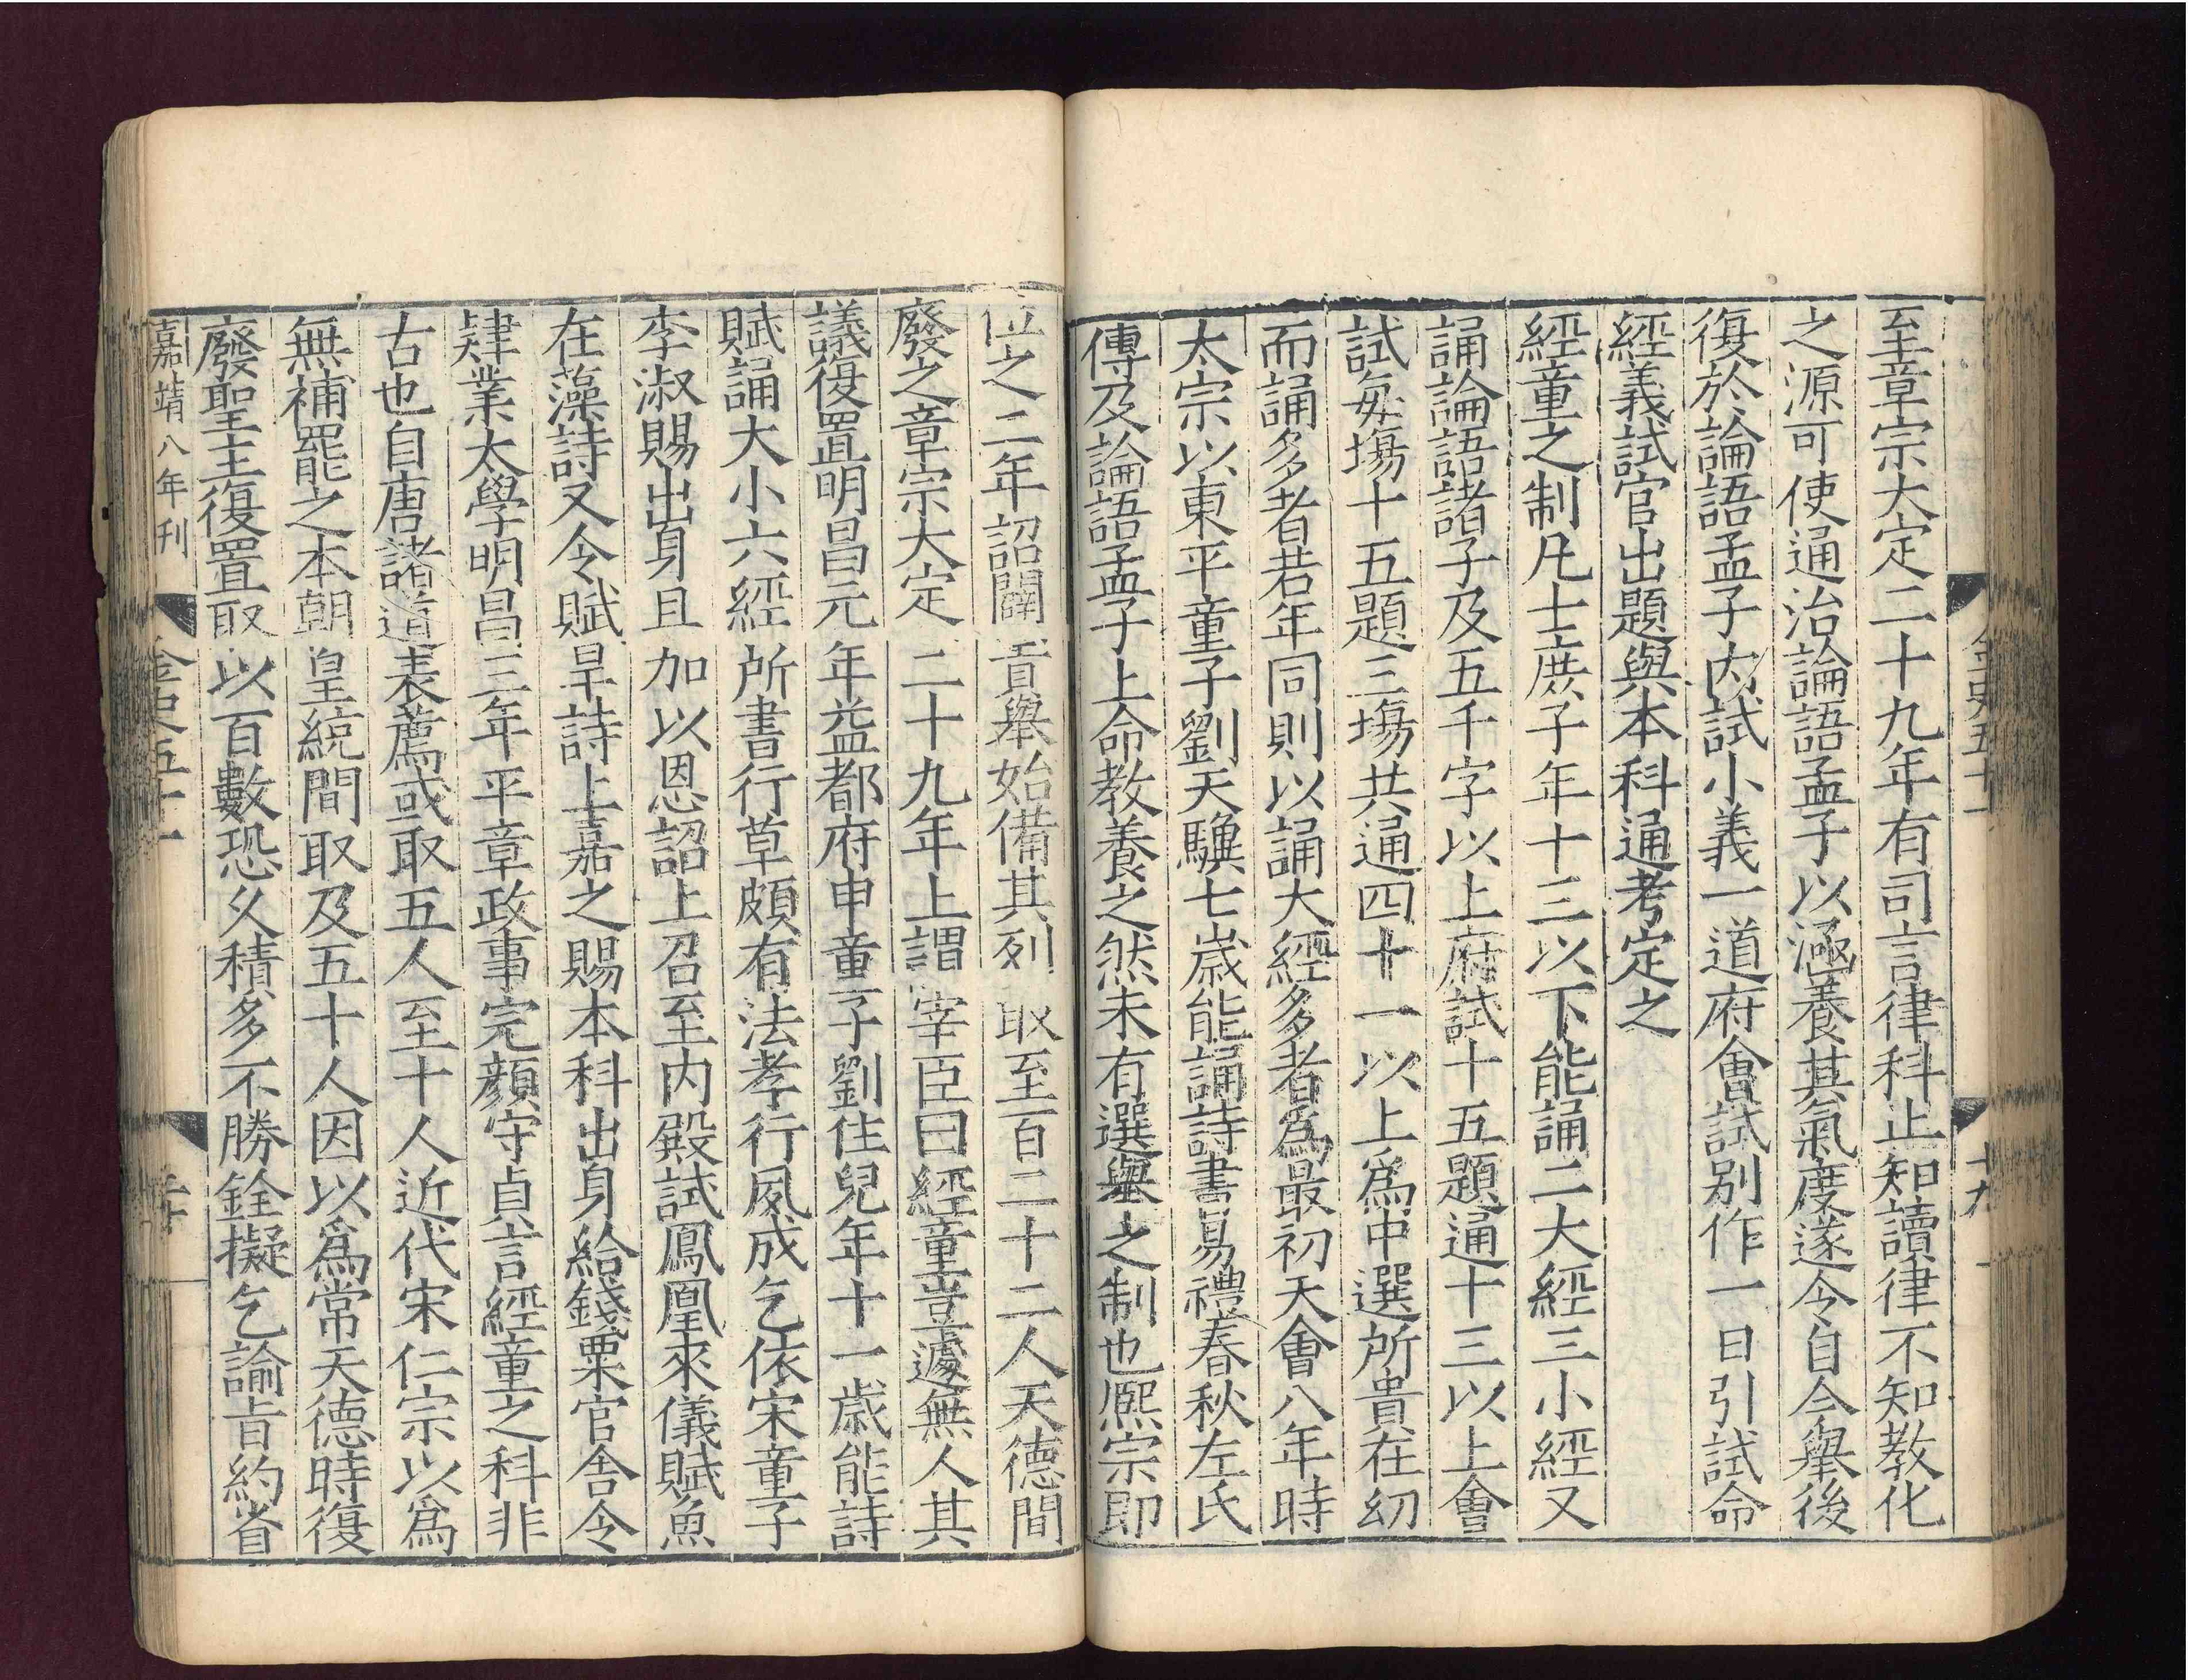 至章宗大定二十九年有司言律科止知讀律不知教化
之源可使通治論語孟子以涵養其氣度遂令自今舉後
復於論語孟子内試小義一道府會試别作一日引試命
經義試官出題與本科通考定之
經童之制凡士庶子年十三以下能誦二大經三小經又
誦論語諸子及五千字以上府試十五題通十三以上會
試每場十五題三場共通四十一以上爲中選所貴在幼
而誦多者若年同則以誦大經多者爲最初天會八年時
太宗以東平童子劉天驥七歲能誦詩書易禮春秋左氏
傳及論語孟子上命教養之然未有選舉之制也熙宗即
位之二年詔闢貢舉始備其列取至百二十二人天德間
廢之章宗大定二十九年上謂宰臣曰經童豈遽無人其
議復置明昌元年益都府申童子劉住兒年十一歲能詩
賦誦大小六經所書行草頗有法孝行夙成乞依宋童子
李淑賜出身且加以恩詔上召至内殿試鳳凰來儀賦魚
在藻詩又令賦旱詩上嘉之賜本科出身給錢粟官舍令
肄業太學明昌三年平章政事完顏守貞言經童之科非
古也自唐諸道表薦或取五人至十人近代宋仁宗以爲
無補罷之本朝皇統間取及五十人因以爲常天德時復
廢聖主復置取以百數恐久積多不勝銓擬乞諭旨約省
嘉靖八年刊
金史五十一